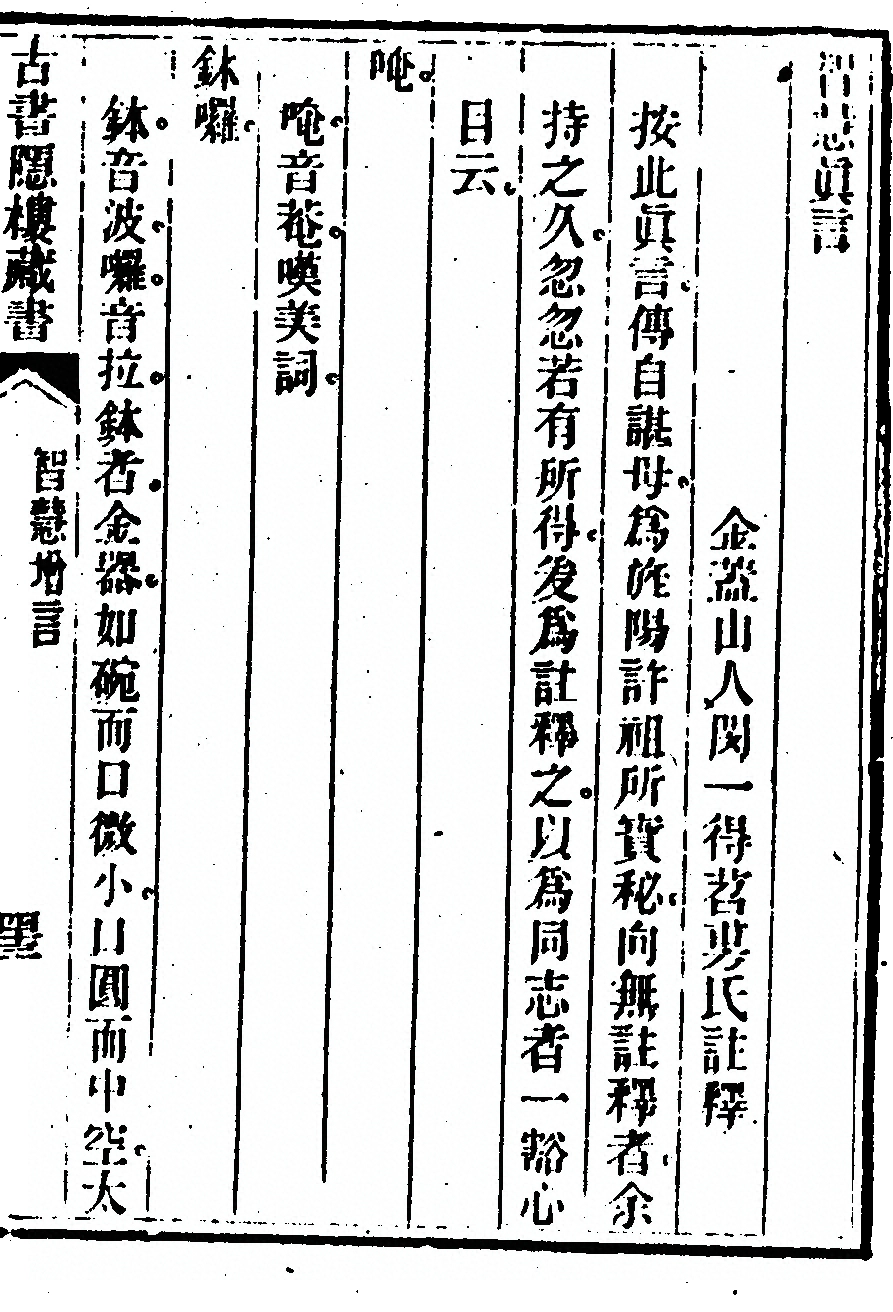 智慧眞言
金蓋山人閔一得苕旉氏註釋
按此眞言。傳自諶母。爲旌陽許祖所寶秘。向無註釋者。余
持之久。忽忽若有所得。後爲註釋之。以爲同志者一豁心
目云。
唵。
唵。音菴。嘆美詞。
鉢囉。
鉢。音波。囉。音拉。鉢者。金器。如碗而口微小。口圓而中空。太
古書隱樓藏書
智慧增言